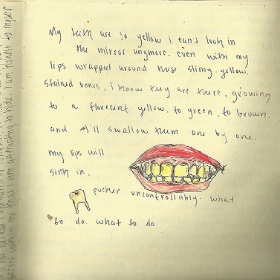 My teeth are so yellow i can't look in
the mirror anymore. even with my
lips wrapped around those slimy, yellow,
stained bones, i know they are there, growing
to a florecent yellow, to green, to brown,
and i'll swallow them one by one.
my lips will
sink in.
pucker uncontrollably. what
to do. what to do.